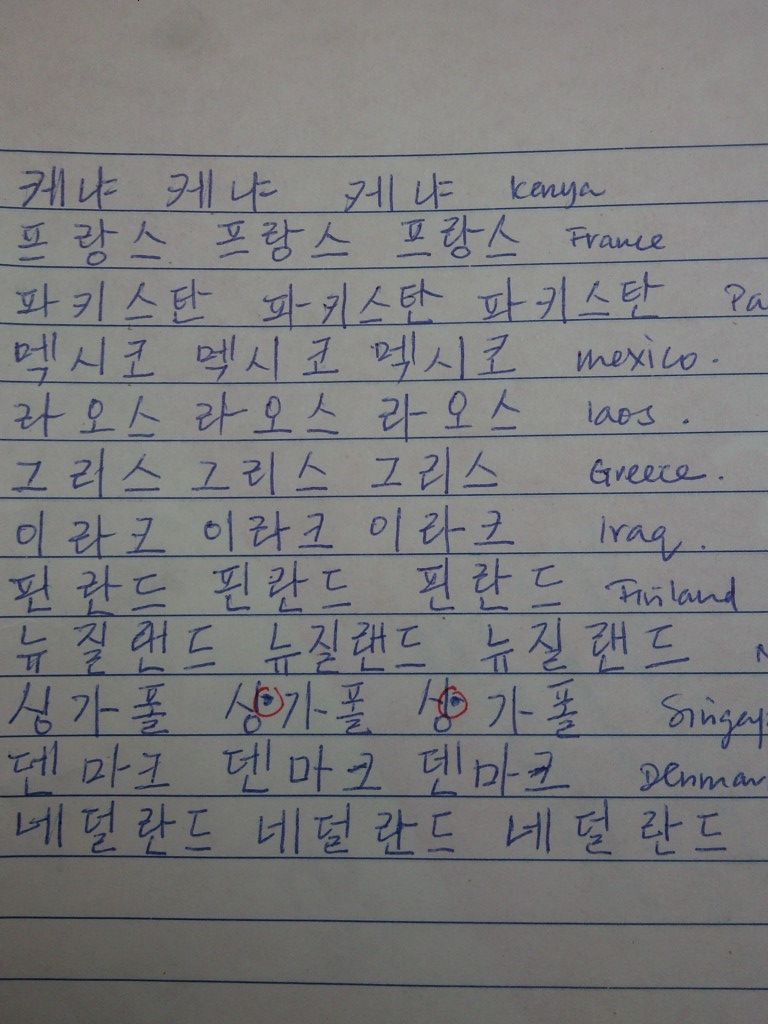 케냐 케냐 케냐 Kenya
프랑스 프랑스 프랑스 France
파키스탄 파키스탄 파키스탄 Pa
멕시코 멕시코 멕시코 mexico.
라오스 라오스 라오스 laos.
그리스 그리스 그리스 Greece.
이라크 이라크 이라크 Iraq.
핀란드 핀란드 핀란드 Finland
뉴질랜드 뉴질랜드 뉴질랜드 N
싱가폴 싱가폴 싱가폴 Singap
덴마크 덴마크 덴마크 Denmar
네덜란드 네덜란드 네덜란드